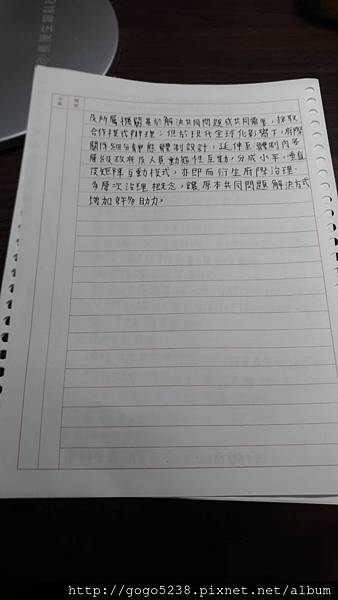 及所屬機關基於解決共同問題或共同需求，採取
合作模式辦理；但於現代全球化影響下，府際
關係細分靜態體制設計，延伸至體制內各
層級政府及人員動態性互動，分成水平、垂直
及矩陣互動模式，亦即而衍生府際治理、
多層次治理概念，讓原本共同問題解決方式
增加許多助力。
http://gogo5238.pixnet.net/album